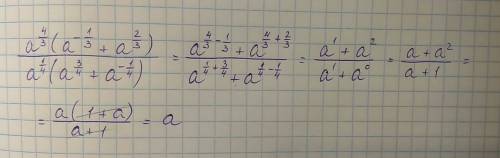 \frac{a^{\frac{4}{3}}(a^{-\frac{1}{3}} + a^{\frac{2}{3}})}{a^{\frac{1}{4}}(a^{\frac{3}{4}} + a^{-\frac{1}{4}})} = \frac{a^{\frac{4}{3} - \frac{1}{3}} + a^{\frac{4}{3} + \frac{2}{3}}}{a^{\frac{1}{4} + \frac{3}{4}} + a^{\frac{1}{4} - \frac{1}{4}}} = \frac{a^1 + a^2}{a^1 + a^0} = \frac{a + a^2}{a + 1} =
= \frac{a(1 + a)}{a + 1} = a